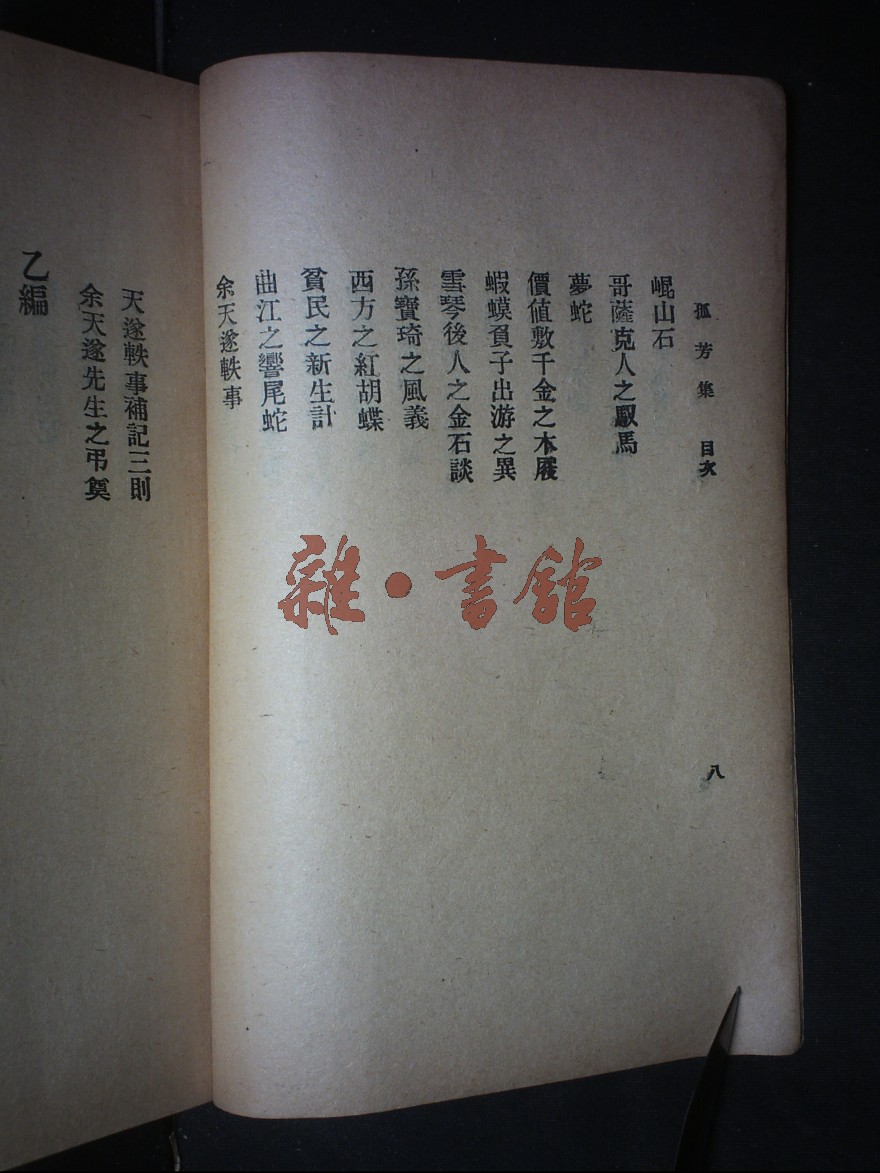 孤芳集 目次
崐山石
哥薩克人之馭馬
夢蛇
價値數千金之木屐
蝦蟆負子出游之異
雪琴後人之金石談
孫寶琦之風義
西方之紅胡蝶
貧民之新生計
曲江之響尾蛇
余天遂軼事
八
天遂軼事補記三則
余天遂先生之弔奠
乙編
雜·書館